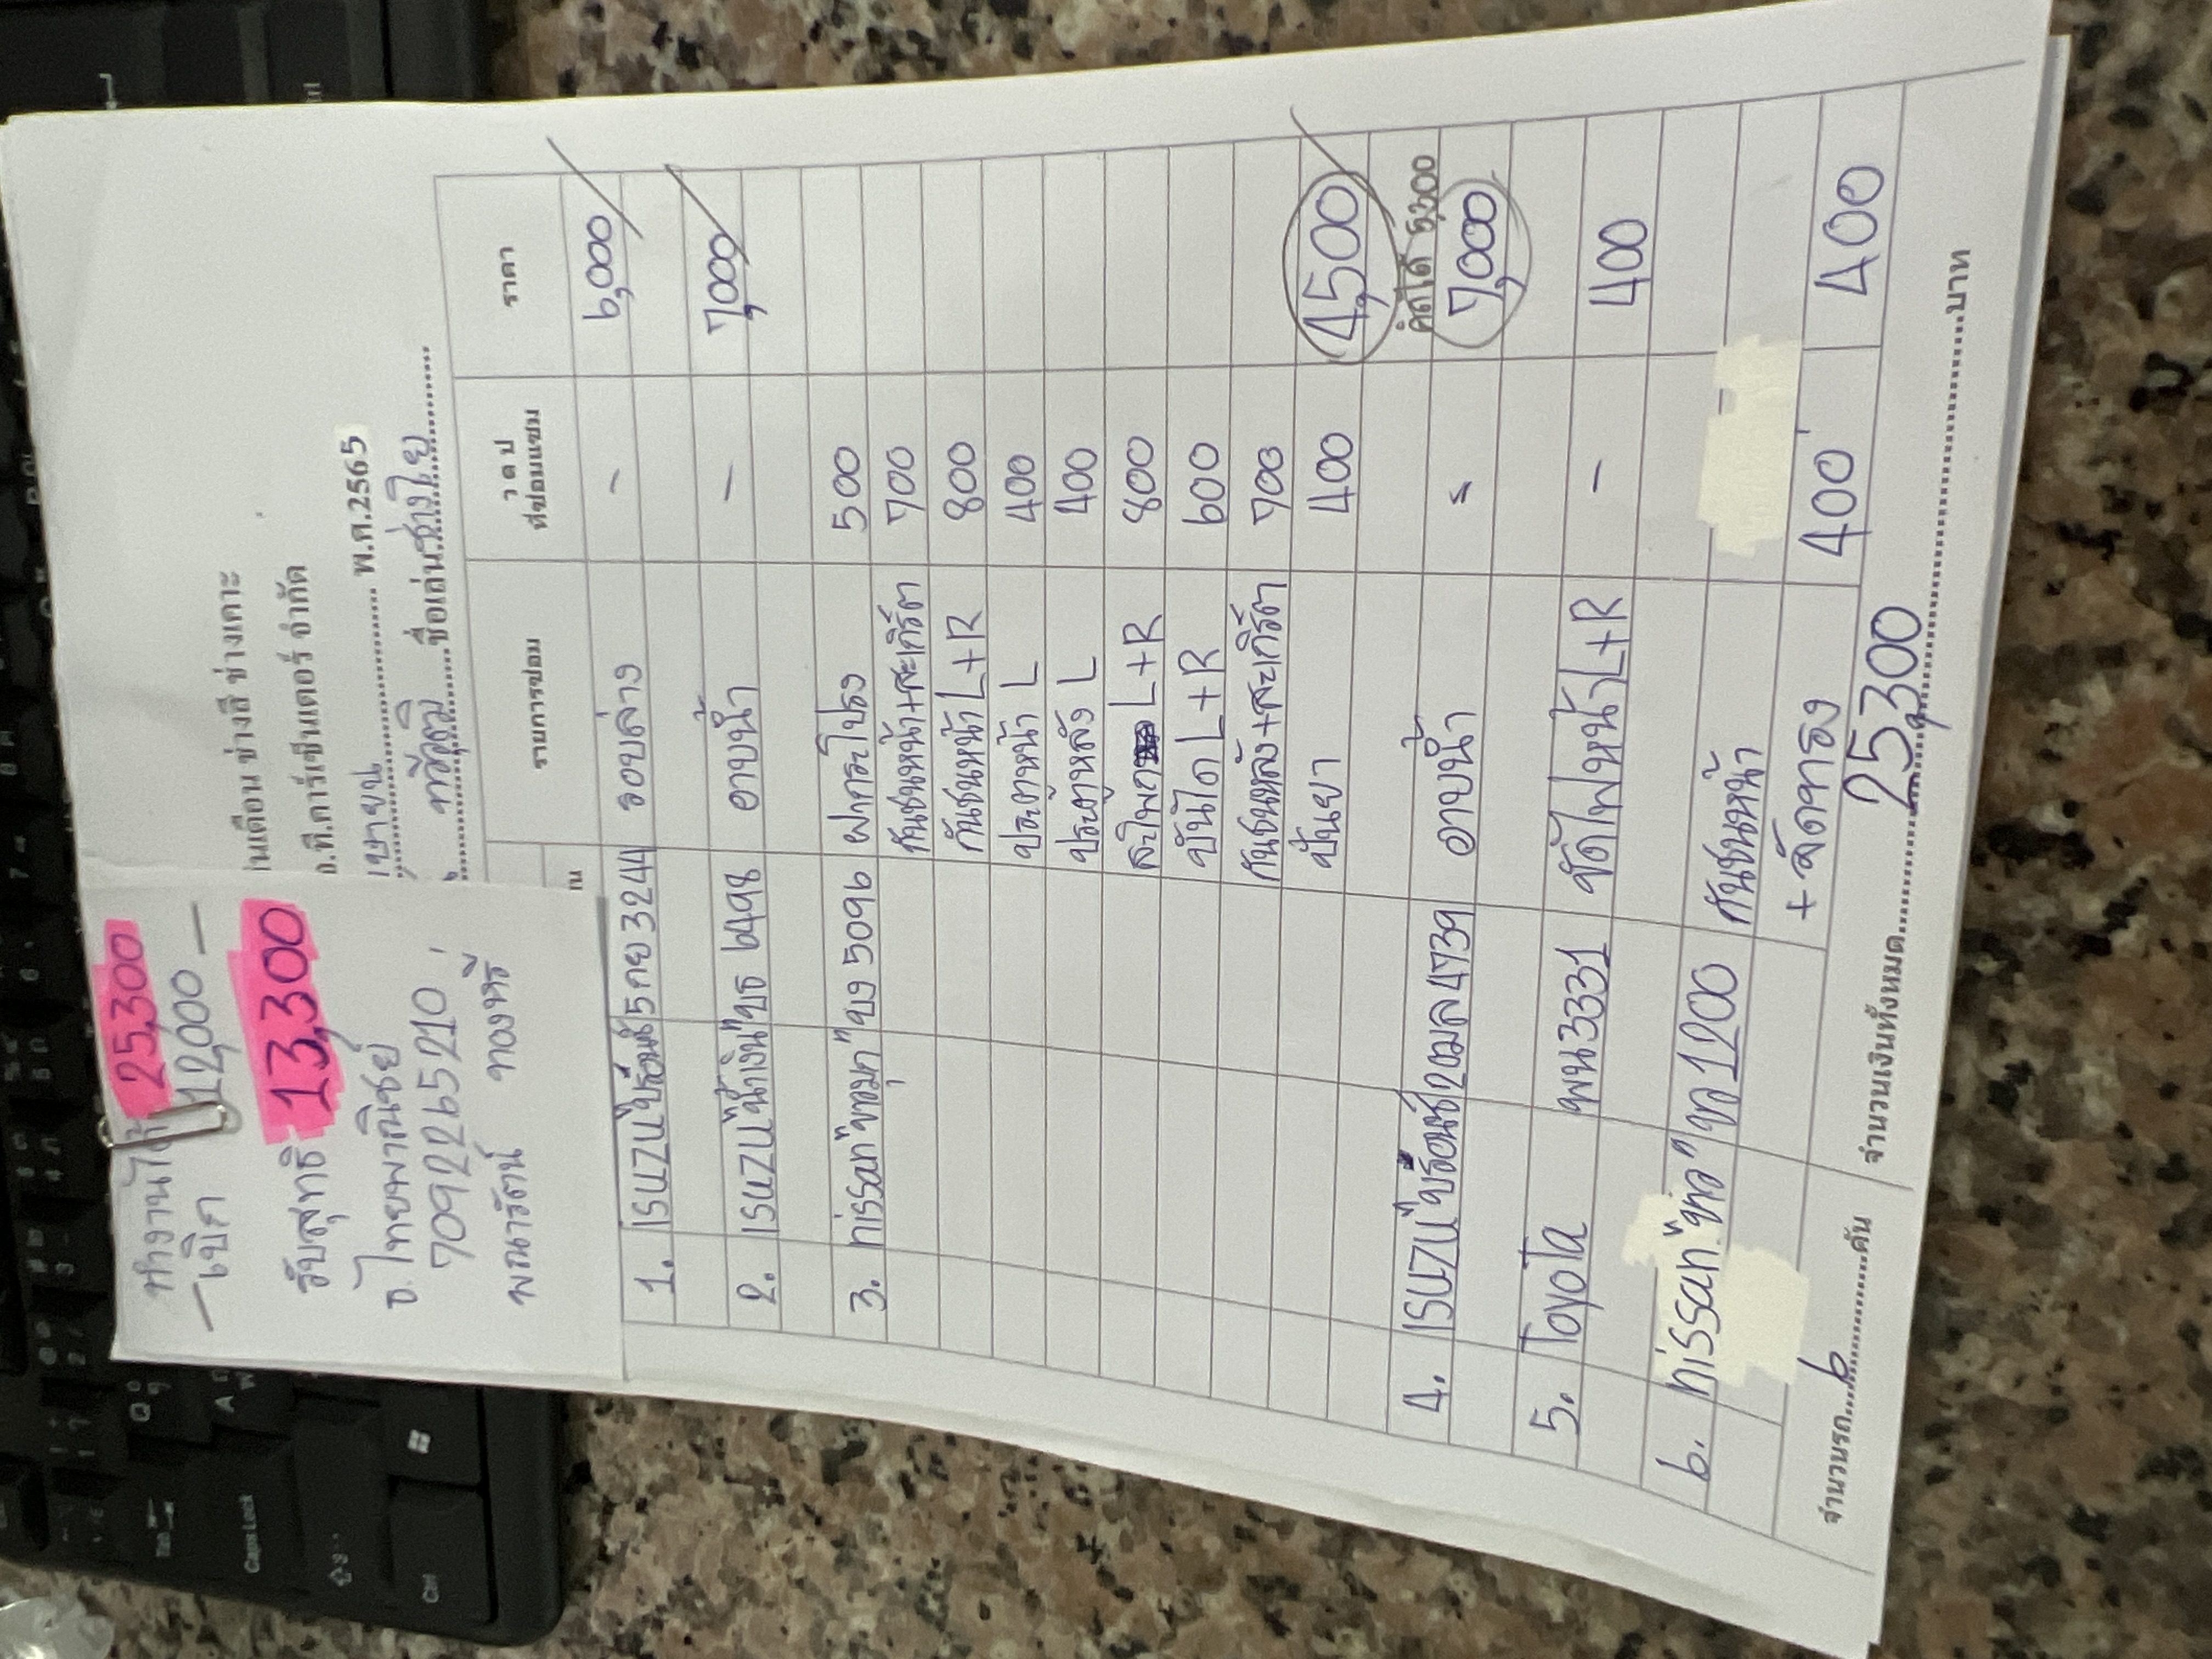 ทำงานได้ 25,300
— เบิก 12,000 —
รับสุทธิ 13,300
ธ.ไทยพาณิชย์
7092265210
พณารัตน์ ทองหรี
นเดือน ช่างสี ช่างเคาะ
อ.ที.คาร์เซ็นเตอร์ จำกัด
เมษายน พ.ศ.2565
ชื่อเล่น ช่างไย
รายการซ่อม ว ด ป ที่ซ่อมแซม ราคา
1. ISUZU "บรอนซ์" 5กย 3244 รอบล่าง - 6,000
2. ISUZU "น้ำเงิน" บธ 6498 อาบน้ำ - 7,000
3. nissan "ขาวมุก" ขง 5096 ฝากระโปรง 500
กันชนหน้า+สเกิร์ต 700
กันชนหน้า L+R 800
ประตูหน้า L 400
ประตูหลัง L 400
สะโพก L+R 800
บันได L+R 600
กันชนหลัง+สเกิร์ต 700
ปั่นยา 400 4,500
คิดได้ 5,300
4. ISUZU "บรอนซ์" 2ฒล 4739 อาบน้ำ = 7,000
5. Toyota พน 3331 ขัดไฟหน้า L+R - 400
6. nissan "ขาว" ขก 1200 กันชนหน้า
+ ลัดทาธง 400 400
จำนวนรถ 6 คัน จำนวนเงินทั้งหมด 25,300 บาท